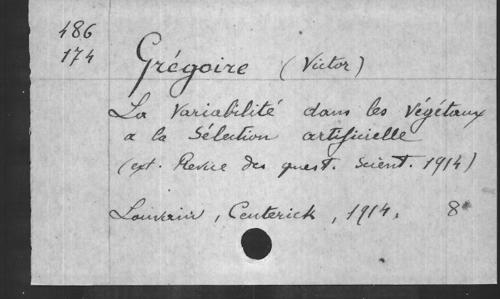 486
174
Grégoire (Victor)
La Variabilité dans les végétaux
a la Sélection artificielle
(ext. Revue des quest. Scient. 1914)
Louvain, Ceuterick, 1914. 8°